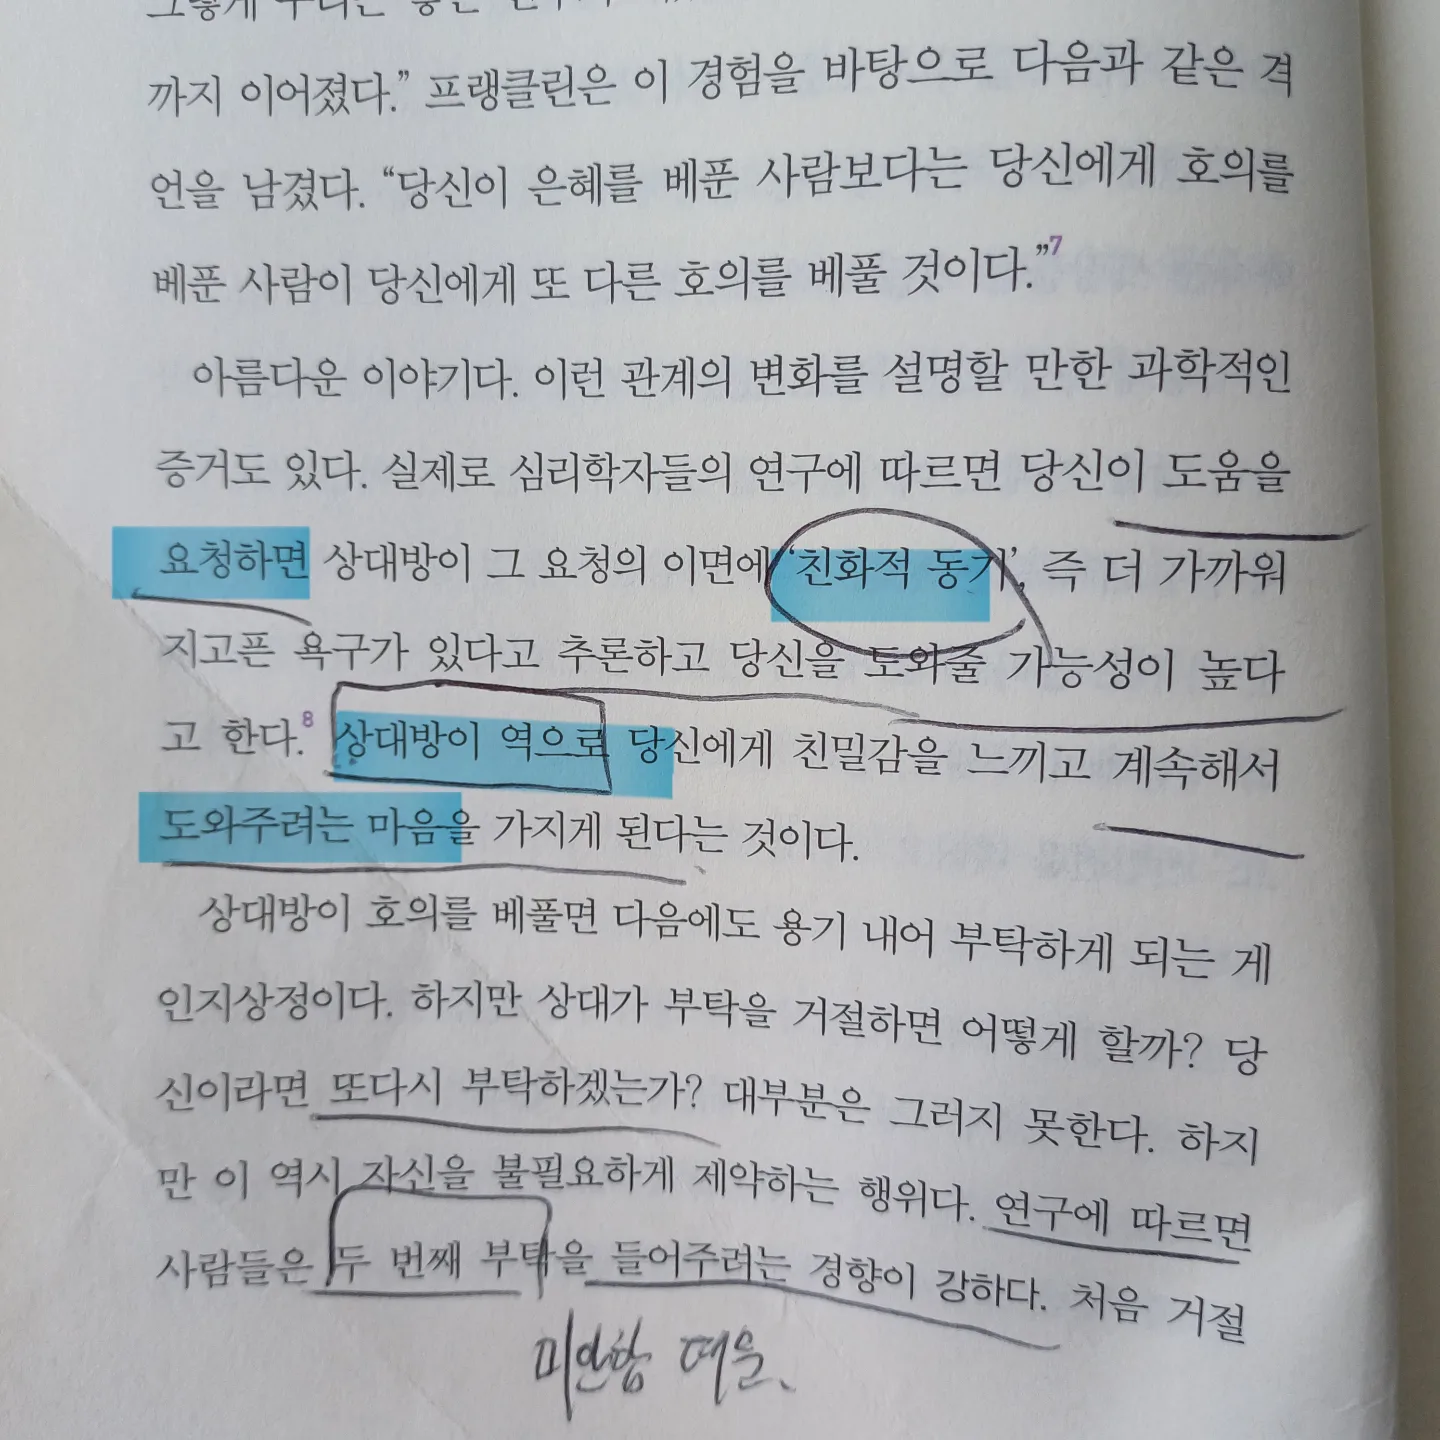 까지 이어졌다.” 프랭클린은 이 경험을 바탕으로 다음과 같은 격
언을 남겼다. “당신이 은혜를 베푼 사람보다는 당신에게 호의를
베푼 사람이 당신에게 또 다른 호의를 베풀 것이다.”7
아름다운 이야기다. 이런 관계의 변화를 설명할 만한 과학적인
증거도 있다. 실제로 심리학자들의 연구에 따르면 당신이 도움을
요청하면 상대방이 그 요청의 이면에 ‘친화적 동기’, 즉 더 가까워
지고픈 욕구가 있다고 추론하고 당신을 도와줄 가능성이 높다
고 한다.8 상대방이 역으로 당신에게 친밀감을 느끼고 계속해서
도와주려는 마음을 가지게 된다는 것이다.
상대방이 호의를 베풀면 다음에도 용기 내어 부탁하게 되는 게
인지상정이다. 하지만 상대가 부탁을 거절하면 어떻게 할까? 당
신이라면 또다시 부탁하겠는가? 대부분은 그러지 못한다. 하지
만 이 역시 자신을 불필요하게 제약하는 행위다. 연구에 따르면
사람들은 두 번째 부탁을 들어주려는 경향이 강하다. 처음 거절
미안함